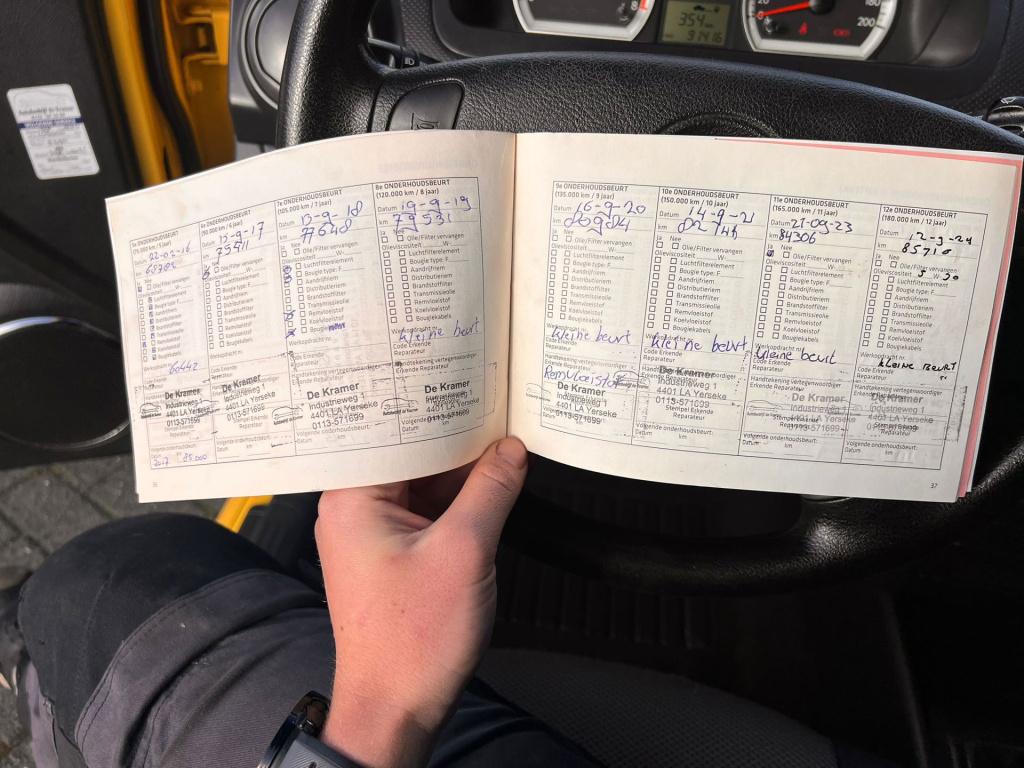 8
354
91416
180
200
Autobedrijf de Kramer
5e ONDERHOUDSBEURT
(75.000 km / 5 jaar)
Datum 22-02-16
km
Ja Nee
Olie/Filter vervangen
Olieviscositeit W
Luchtfilterelement
Bougie type: F
Aandrijfriem
Distributieriem
Brandstoffilter
Transmissieolie
Remvloeistof
Koelvloeistof
Bougiekabels
Werkopdracht nr.
60442
Code Erkende
Reparateur
De Kramer
Industrieweg 1
4401 LA Yerseke
0113-571699
Volgende onderhoudsbeurt:
Datum km
2017 85.000
36
6e ONDERHOUDSBEURT
(90.000 km / 6 jaar)
Datum 15-9-17
km 75911
Ja Nee
Olie/Filter vervangen
Olieviscositeit W
Luchtfilterelement
Bougie type: F
Aandrijfriem
Distributieriem
Brandstoffilter
Transmissieolie
Remvloeistof
Koelvloeistof
Bougiekabels
Werkopdracht nr.
Code Erkende
Reparateur
7e ONDERHOUDSBEURT
(105.000 km / 7 jaar)
Datum 13-9-18
km
Ja Nee
Olie/Filter vervangen
Olieviscositeit W
Luchtfilterelement
Bougie type: F
Aandrijfriem
Distributieriem
Brandstoffilter
Transmissieolie
Remvloeistof
Koelvloeistof
Werkopdracht nr.
Code Erkende
Reparateur
De Kramer
Industrieweg 1
4401 LA Yerseke
0113-571699
Volgende onderhoudsbeurt:
Datum km
8e ONDERHOUDSBEURT
(120.000 km / 8 jaar)
Datum 19-9-19
km 79531
Ja Nee
Olie/Filter vervangen
Olieviscositeit W
Luchtfilterelement
Bougie type: F
Aandrijfriem
Distributieriem
Brandstoffilter
Transmissieolie
Remvloeistof
Koelvloeistof
Bougiekabels
Werkopdracht nr.
kleine beurt
Code Erkende
Reparateur
Handtekening vertegenwoordiger
Erkende Reparateur
De Kramer
Industrieweg 1
4401 LA Yerseke
0113-571699
Volgende onderhoudsbeurt:
Datum km
9e ONDERHOUDSBEURT
(135.000 km / 9 jaar)
Datum 16-9-20
km 80984
Ja Nee
Olie/Filter vervangen
Olieviscositeit W
Luchtfilterelement
Bougie type: F
Aandrijfriem
Distributieriem
Brandstoffilter
Transmissieolie
Remvloeistof
Koelvloeistof
Bougiekabels
Werkopdracht nr.
kleine beurt
Code Erkende
Reparateur
Handtekening vertegenwoordiger
Remvloeistof
De Kramer
Industrieweg 1
4401 LA Yerseke
0113-571699
Volgende onderhoudsbeurt:
Datum km
10e ONDERHOUDSBEURT
(150.000 km / 10 jaar)
Datum 14-9-21
km
Ja Nee
Olie/Filter vervangen
Olieviscositeit W
Luchtfilterelement
Bougie type: F
Aandrijfriem
Distributieriem
Brandstoffilter
Transmissieolie
Remvloeistof
Koelvloeistof
Bougiekabels
Werkopdracht nr.
kleine beurt
Code Erkende
Reparateur
Handtekening vertegenwoordiger
De Kramer
Industrieweg 1
4401 LA Yerseke
0113-571699
Stempel Erkende
Reparateur
Volgende onderhoudsbeurt:
Datum km
11e ONDERHOUDSBEURT
(165.000 km / 11 jaar)
Datum 21-09-23
km 84306
Ja Nee
Olie/Filter vervangen
Olieviscositeit W
Luchtfilterelement
Bougie type: F
Aandrijfriem
Distributieriem
Brandstoffilter
Transmissieolie
Remvloeistof
Koelvloeistof
Bougiekabels
Werkopdracht nr.
kleine beurt
Code Erkende
Reparateur
Handtekening vertegenwoordiger
De Kramer
Industrieweg 1
4401 LA Yerseke
0113-571699
Volgende onderhoudsbeurt:
Datum km
12e ONDERHOUDSBEURT
(180.000 km / 12 jaar)
Datum 12-9-24
km 85910
Ja Nee
Olie/Filter vervangen
Olieviscositeit 5 W 30
Luchtfilterelement
Bougie type: F
Aandrijfriem
Distributieriem
Brandstoffilter
Transmissieolie
Remvloeistof
Koelvloeistof
Bougiekabels
Werkopdracht nr.
KLEINE BEURT
Code Erkende
Reparateur
Handtekening vertegenwoordiger
De Kramer
Industrieweg 1
4401 LA Yerseke
0113-571699
Reparateur
Volgende onderhoudsbeurt:
Datum km
37